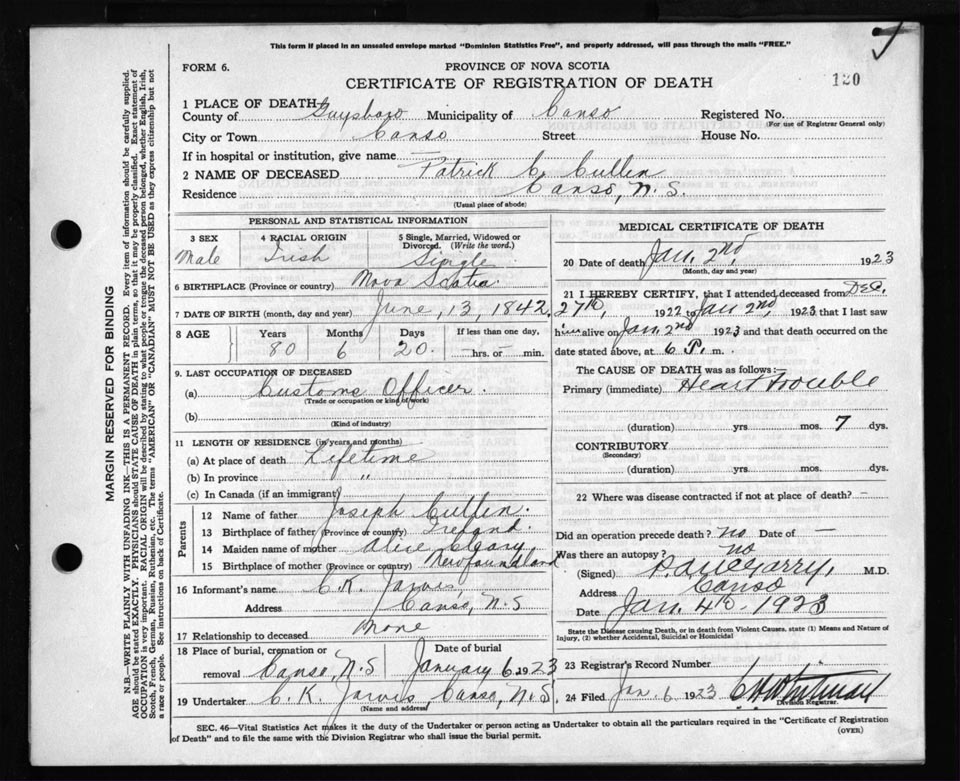 This form if placed in an unsealed envelope marked "Dominion Statistics Free", and properly addressed, will pass through the mails "FREE."
FORM 6.
PROVINCE OF NOVA SCOTIA
CERTIFICATE OF REGISTRATION OF DEATH
120
1 PLACE OF DEATH
County of Guysboro Municipality of Canso Registered No.
(For use of Registrar General only)
City or Town Canso Street House No.
If in hospital or institution, give name —
2 NAME OF DECEASED Patrick C. Cullen
Residence Canso, N. S.
(Usual place of abode)
PERSONAL AND STATISTICAL INFORMATION
3 SEX Male
4 RACIAL ORIGIN Irish
5 Single, Married, Widowed or Divorced. (Write the word.) Single
6 BIRTHPLACE (Province or country) Nova Scotia
7 DATE OF BIRTH (month, day and year) June, 13, 1842.
8 AGE Years Months Days If less than one day,
80 6 20. — hrs. or — min.
9. LAST OCCUPATION OF DECEASED
(a) Customs Officer.
(Trade or occupation or kind of work)
(b)
(Kind of industry)
11 LENGTH OF RESIDENCE (in years and months)
(a) At place of death Lifetime
(b) In province "
(c) In Canada (if an immigrant)
Parents
12 Name of father Joseph Cullen.
13 Birthplace of father (Province or country) Ireland.
14 Maiden name of mother Alice
15 Birthplace of mother (Province or country) Newfoundland
16 Informant's name C. K. Jarvis,
Address Canso, N. S
17 Relationship to deceased None
18 Place of burial, cremation or removal Canso, N. S
Date of burial January 6 1923
19 Undertaker C. K. Jarvis, Canso, N. S.
(Name and address)
MEDICAL CERTIFICATE OF DEATH
20 Date of death Jan. 2nd, 1923
(Month, day and year)
21 I HEREBY CERTIFY, that I attended deceased from Dec.
27th, 1922 to Jan 2nd, 1923 that I last saw
him alive on Jan. 2nd 1923 and that death occurred on
date stated above, at 6 P. m.
The CAUSE OF DEATH was as follows:
Primary (immediate) Heart trouble
(duration) yrs mos. 7 dys.
CONTRIBUTORY
(Secondary)
(duration) yrs. mos. dys.
22 Where was disease contracted if not at place of death? —
Did an operation precede death? no Date of —
Was there an autopsy? no
(Signed) M.D.
Address Canso
Date Jan. 4th 1923
State the Disease causing Death, or in death from Violent Causes, state (1) Means and Nature of
Injury, (2) whether Accidental, Suicidal or Homicidal
23 Registrar's Record Number
24 Filed Jan. 6 1923 Whitman
Division Registrar.
SEC. 46—Vital Statistics Act makes it the duty of the Undertaker or person acting as Undertaker to obtain all the particulars required in the "Certificate of Registration
of Death" and to file the same with the Division Registrar who shall issue the burial permit.
(OVER)
MARGIN RESERVED FOR BINDING
N.B.—WRITE PLAINLY WITH UNFADING INK—THIS IS A PERMANENT RECORD. Every item of information should be carefully supplied.
AGE should be stated EXACTLY. PHYSICIANS should STATE CAUSE OF DEATH in plain terms, so that it may be properly classified. Exact statement of
OCCUPATION is very important. RACIAL ORIGIN will be described by stating to what people or tongue the deceased person belonged, whether English, Irish,
Scotch, French, German, Russian, Ruthenian, etc. The terms "AMERICAN" OR "CANADIAN" MUST NOT BE USED as they express citizenship but not
a race or people. See instructions on back of Certificate.